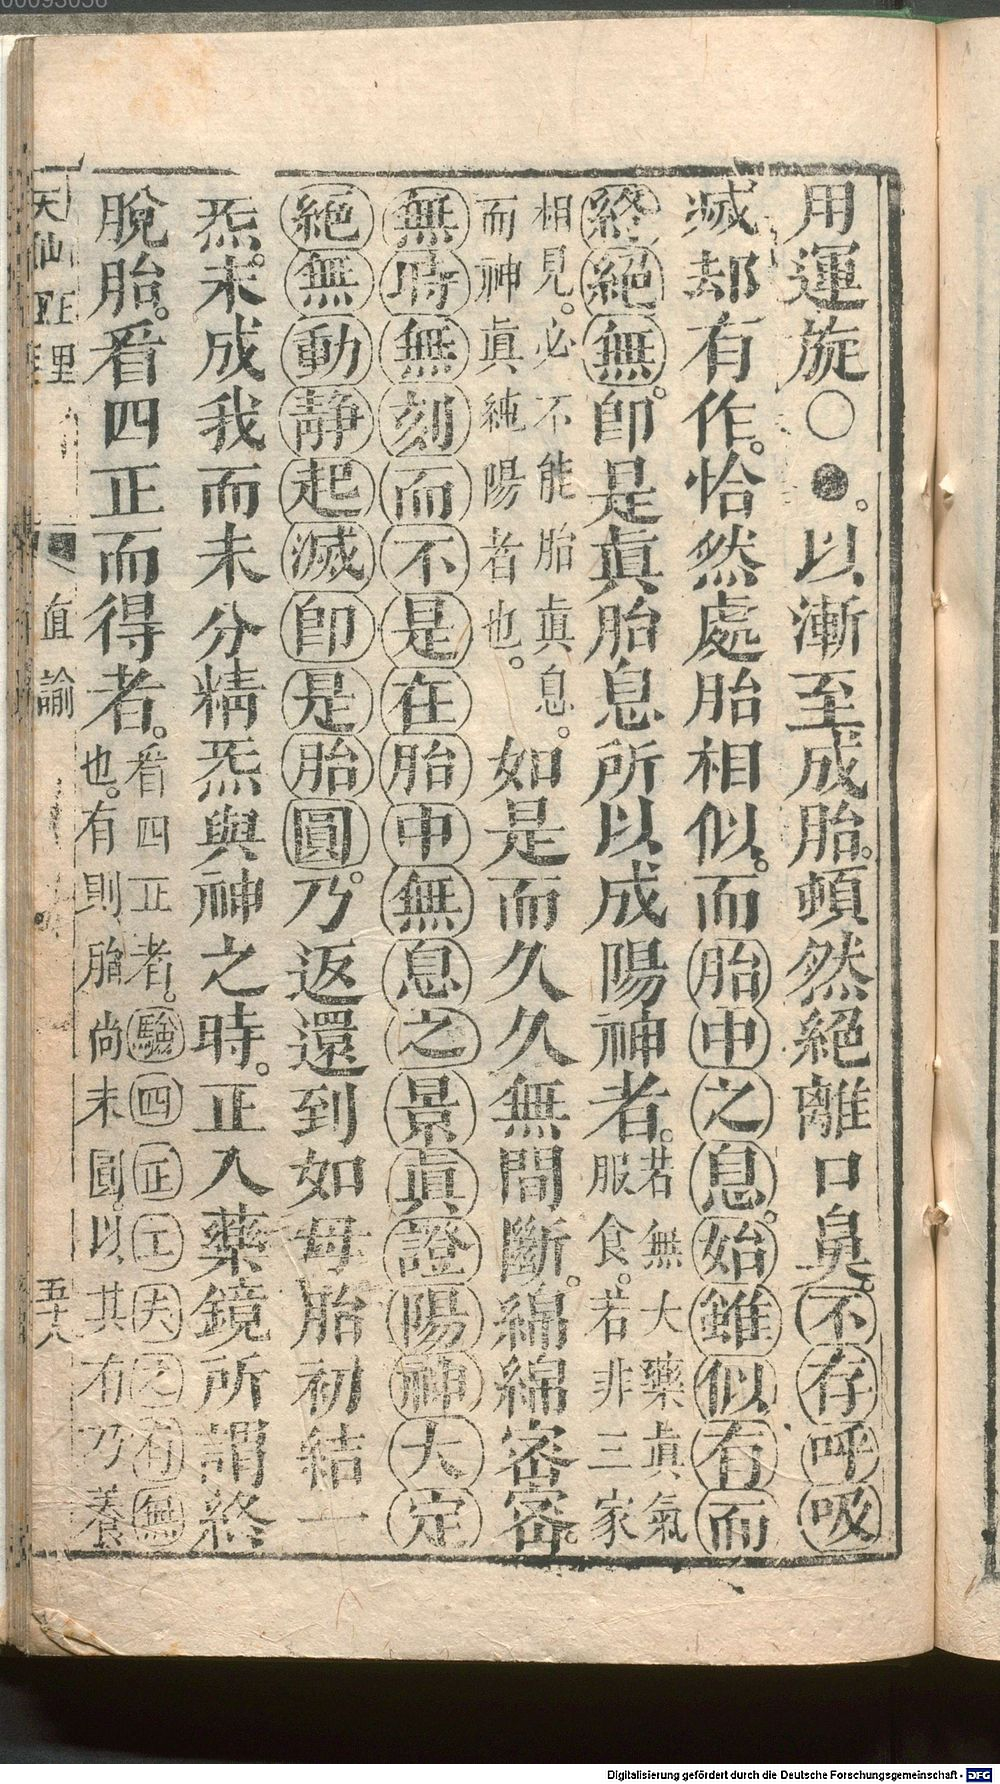 用運旋○●。以漸至成胎。頓然絕離口鼻。不存呼吸
滅却有作。恰然處胎相似。而胎中之息。始雖似有而
終絕無。卽是眞胎息所以成陽神者。若無大藥眞氣
服食。若非三家
相見。必不能胎眞息。
而神眞純陽者也。如是而久久無間斷。綿綿密密。
無時無刻而不是在胎中無息之景眞證陽神大定
絕無動靜起滅卽是胎圓。乃返還到如母胎初結一
炁。未成我而未分精炁與神之時。正入藥鏡所謂終
脫胎。看四正而得者。看四正者。驗四正工夫之有無
也。有則胎尚未圓。以其有乃養
天仙正理 直論 五十八
00093056
Digitalisierung gefördert durch die Deutsche Forschungsgemeinschaft - DFG